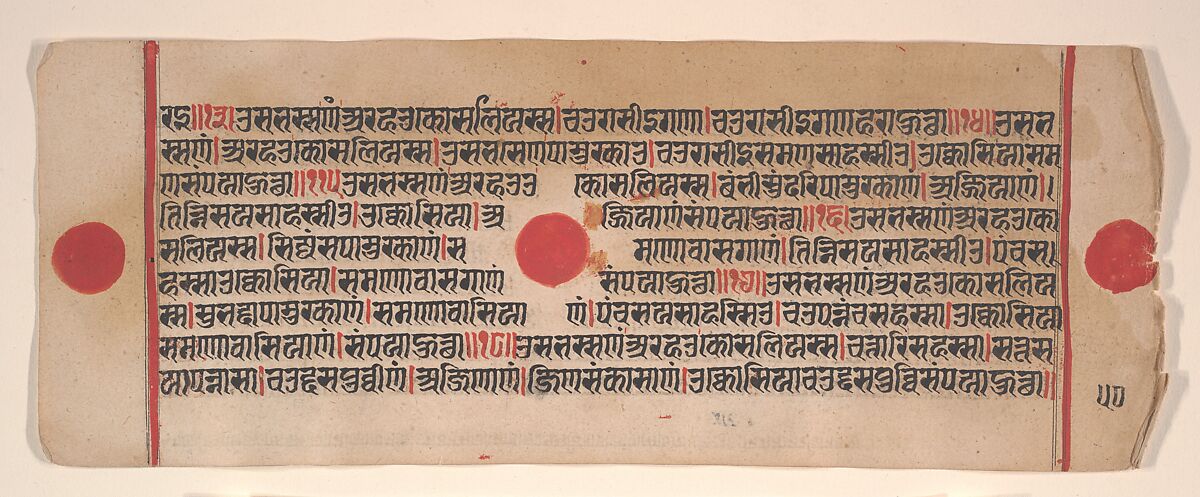 रइ॥१३॥उसभस्सणंअरहओकोसलियस्स।चउरासीइगणा।चउरासीइगणहराहुत्था॥१४॥उसभ
स्सणं।अरहओकोसलियस्स।उसभसेणपामुरकाउ।चउरासीइसमणसाहस्सीउ।उक्कोसियासम
णसंपयाहुत्था॥१५उसभस्सणंअरहउउ कोसलियस्स।बंभीसुंदरिपामुरकाणं।अज्जियाणं।।
तिन्निसयसाहस्सीउ।उक्कोसिया।अ ज्जियाणंसंपयाहुत्था॥१६।उसभस्सणंअरहउको
सलियस्स।सिज्जंसपामुरकाणं।स मणोवासगाणं।तिन्निसयसाहस्सीउ।पंचस।
हस्साउक्कोसिया।समणोवासगाणं संपयाहुत्था॥१७॥उसभस्सणंअरहउकोसलिय
स्स।सुभद्दापामुरकाणं।समणोवासिया णं।पंचसयसाहस्सिउ।चउपन्नंचसहस्सा।उक्कोसिया
समणोवासियाणं।संपयाहुत्था॥१८॥उसभस्सणंअरहउकोसलियस्स।चत्तारिसहस्सा।सत्तस
यापन्नासा।चउद्दसपुव्वीणं।अजिणाणं।जिणसंकासाणं।उक्कोसियाचउद्दसपुव्विसंपयाहुत्था॥
५०